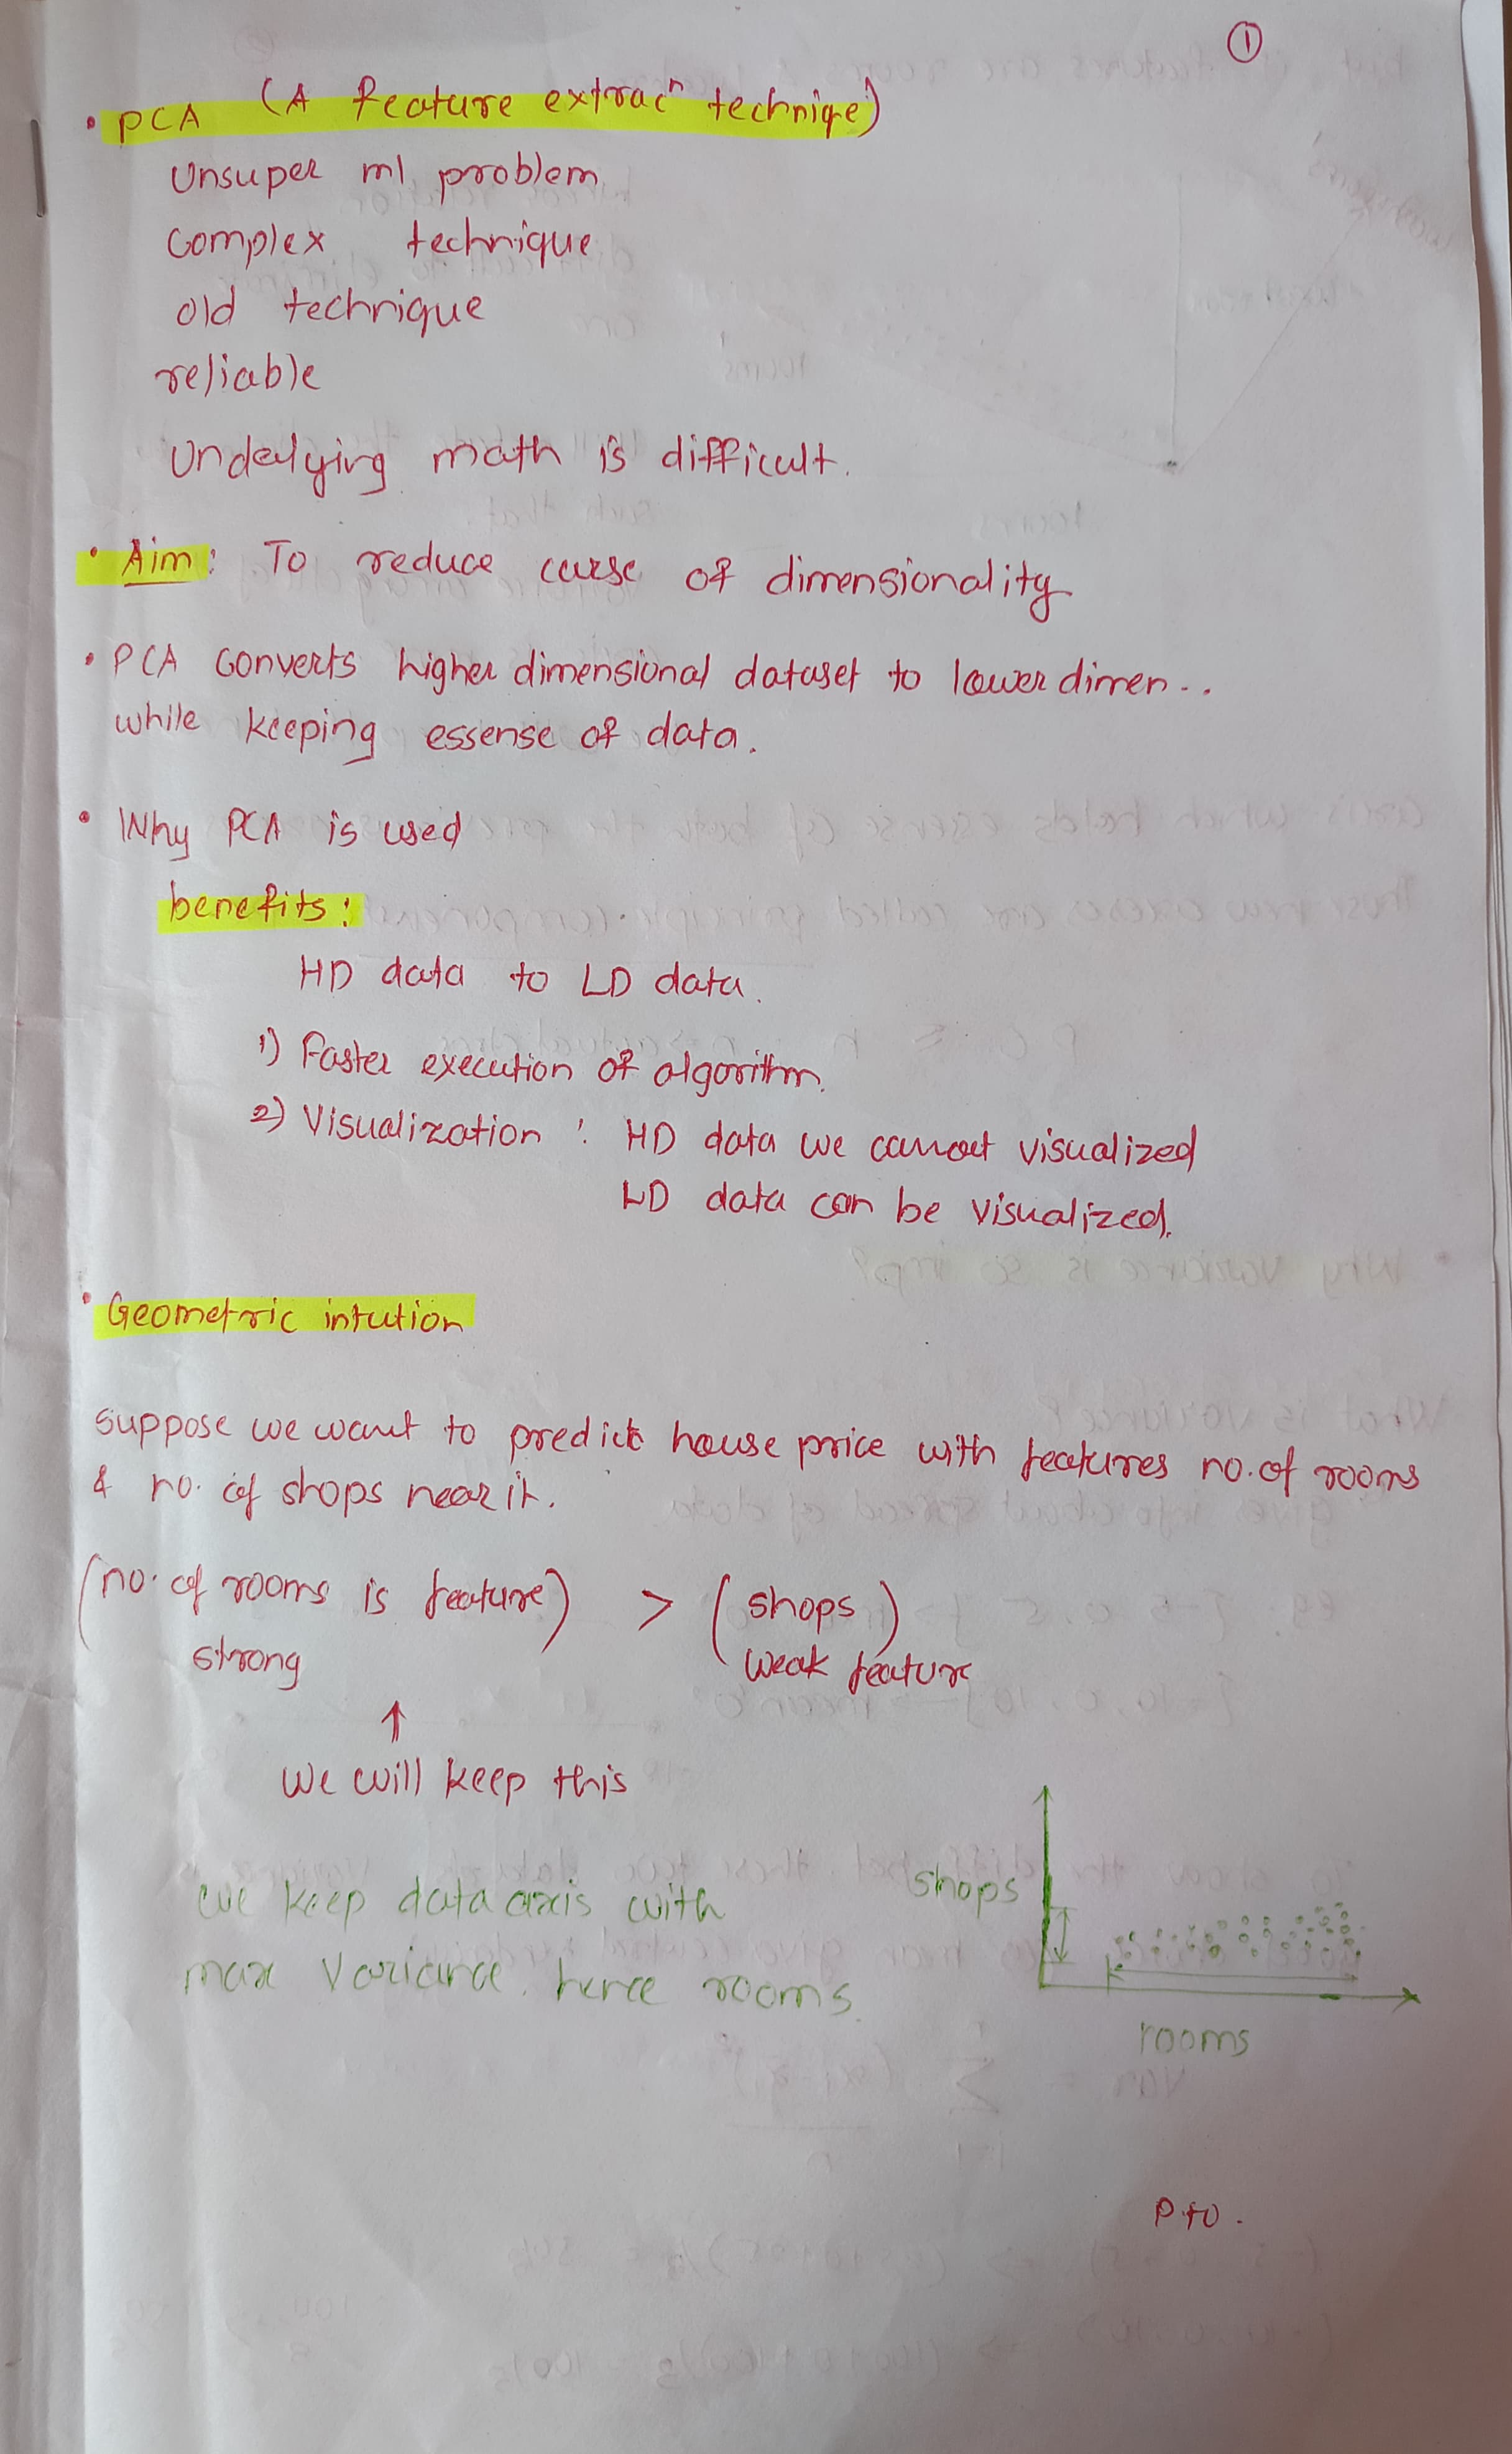 ①
• PCA (A feature extracⁿ techniqe)
Unsuper ml problem
complex technique
old technique
reliable
Underlying math is difficult.
• Aim: To reduce curse of dimensionality
• PCA converts higher dimensional dataset to lower dimen...
while keeping essense of data.
• Why PCA is used
benefits:
HD data to LD data.
1) Faster execution of algorithm.
2) Visualization : HD data we cannot visualized
LD data can be visualized.
• Geometric intution
Suppose we want to predict house price with features no. of rooms
& no. of shops near it.
(no. of rooms is feature) > (shops)
strong weak feature
↑
we will keep this
we keep data axis with
max variance. hence rooms
shops
rooms
P to.